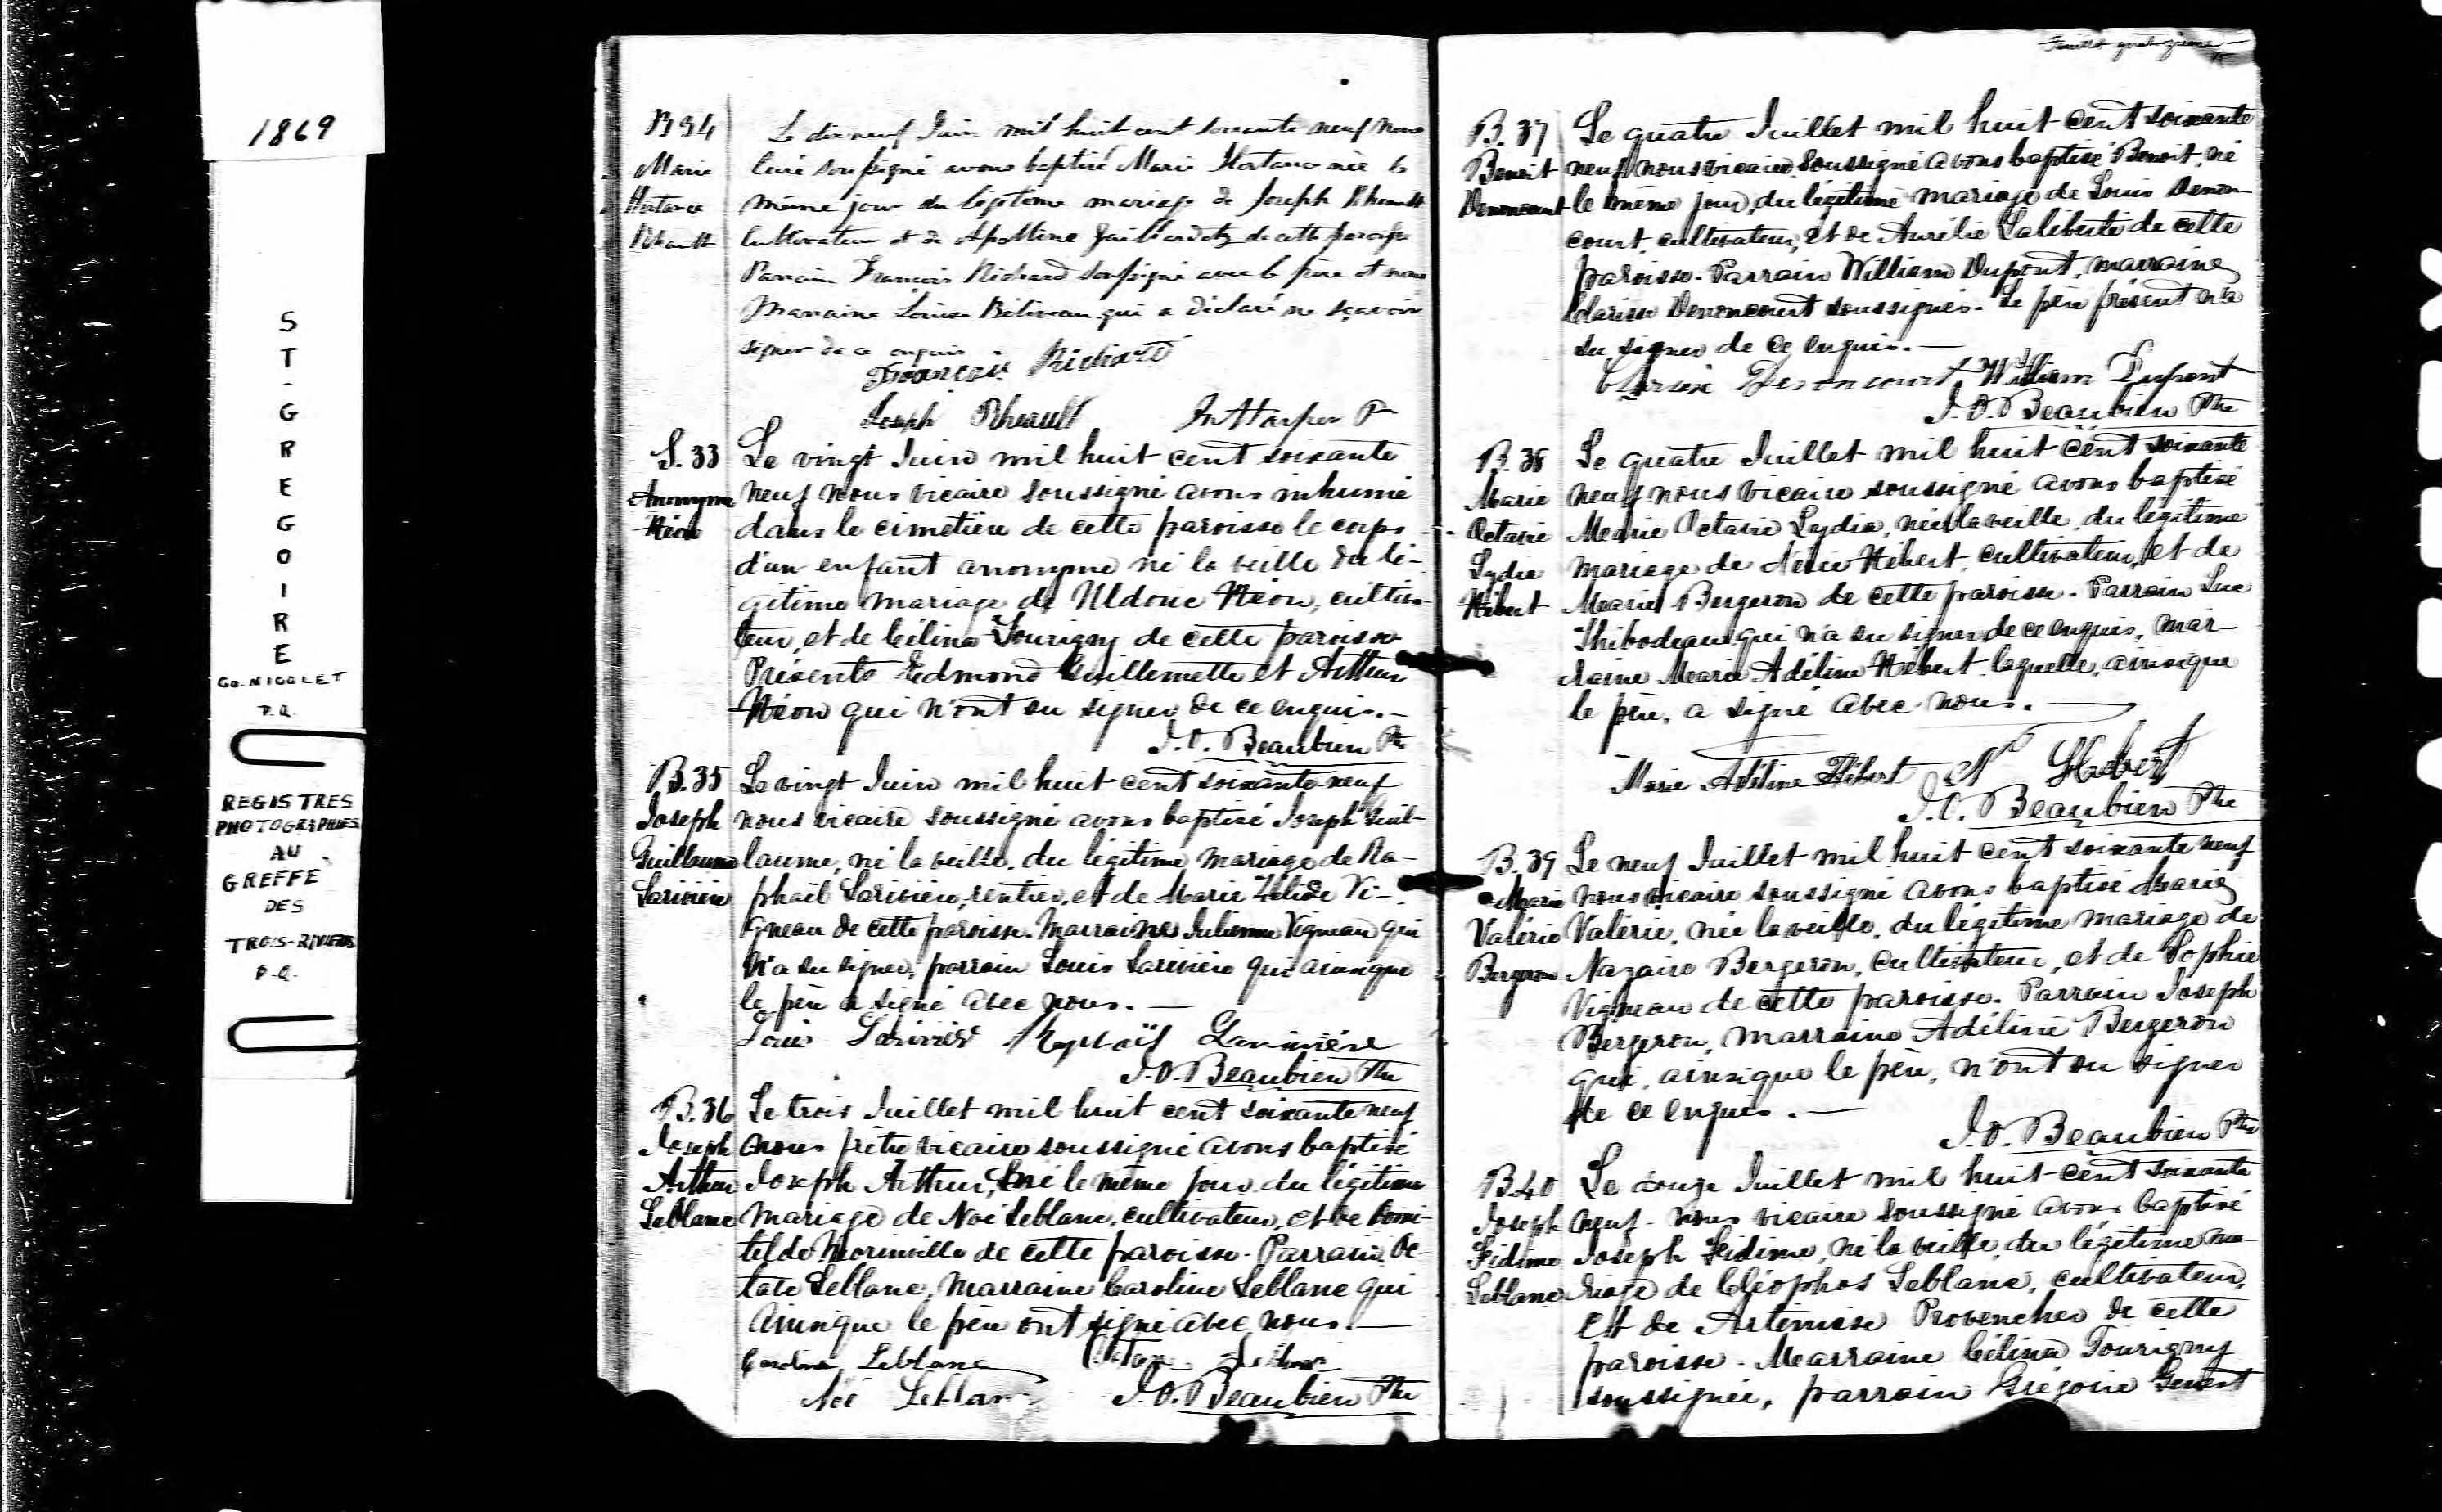 1869
ST-GREGOIRE
CO. NICOLET
P.Q.
REGISTRES
PHOTOGRAPHIES
AU
GREFFE
DES
TROIS-RIVIERES
P.Q.
B 34
Marie
Hortance
Rheault
Le dixneuf Juin mil huit cent soixante neuf nous
Curé soussigné avons baptisé Marie Hortance née le
même jour du légitime mariage de Joseph Rheault
Cultivateur et de Apolline Gaillardetz de cette paroisse
Parrain François Richard soussigné avec le père et nous
Marraine Louise Béliveau qui a déclaré ne sçavoir
signer de ce enquis.
François Richard
Joseph Rheault Jn Harper P
S. 33
Anonyme
Héon
Le vingt Juin mil huit cent soixante
neuf nous vicaire soussigné avons inhumé
dans le cimetière de cette paroisse le corps
d'un enfant anonyme né la veille du lé-
gitime mariage de Uldoric Héon, cultiva-
teur, et de Célina Tourigny de cette paroisse
Présents Edmond Guillemette et Arthur
Héon qui n'ont su signer de ce enquis.-
J.O. Beaubien Ptre
B. 35
Joseph
Guillaume
Larivière
Le vingt Juin mil huit cent soixante neuf
nous vicaire soussigné avons baptisé Joseph Guil-
laume, né la veille, du légitime mariage de Ra-
phaël Larivière, rentier, et de Marie Zélide Vi-
gneau de cette paroisse. Marraine Julienne Vigneau qui
n'a su signer, parrain Louis Larivière qui ainsique
le père a signé avec nous. —
Louis Larivièr Raphaïl Larivière
J.O. Beaubien Ptre
B. 36
Joseph
Arthur
Leblanc
Le trois Juillet mil huit cent soixante neuf
nous prêtre vicaire soussigné avons baptisé
Joseph Arthur, né le même jour du légitime
mariage de Noé Leblanc, cultivateur, et de Domi-
tilde Morinville de cette paroisse. Parrain Oc-
tave Leblanc, Marraine Caroline Leblanc qui
ainsique le père ont signé avec nous. —
Caroline Leblanc Octave Leblanc
Noé Leblanc J.O. Beaubien Ptre
Feuillet quatorzième
B. 37
Benoit
Denoncourt
Le quatre Juillet mil huit cent soixante
neuf nous vicaire soussigné avons baptisé Benoit, né
le même jour, du légitime mariage de Louis Denon-
court, cultivateur, et de Aurélie Laliberté de cette
paroisse. Parrain William Dupont, marraine
Clarisse Denoncourt soussignés. Le père présent n'a
su signer de ce enquis. —
Clarisse Denoncourt William Dupont
J.O. Beaubien Ptre
B. 38
Marie
Octavie
Lydia
Hébert
Le quatre Juillet mil huit cent soixante
neuf nous vicaire soussigné avons baptisé
Marie Octavie Lydia, née la veille, du légitime
mariage de Nérée Hébert, cultivateur, et de
Marie Bergeron de cette paroisse. Parrain Luc
Thibodeau qui n'a su signer de ce enquis, mar-
raine Marie Adéline Hébert laquelle, ainsique
le père, a signé avec nous. —
Marie Adéline Hébert N Hébert
J.O. Beaubien Ptre
B. 39
Marie
Valérie
Bergeron
Le neuf Juillet mil huit cent soixante neuf
nous vicaire soussigné avons baptisé Marie
Valérie, née la veille, du légitime mariage de
Nazaire Bergeron, cultivateur, et de Sophie
Vigneau de cette paroisse. Parrain Joseph
Bergeron, marraine Adéline Bergeron
qui, ainsique le père, n'ont su signer
de ce enquis. —
J.O. Beaubien Ptre
B 40
Joseph
Fidime
Leblanc
Le douze Juillet mil huit cent soixante
neuf nous vicaire soussigné avons baptisé
Joseph Fidime, né la veille, du légitime ma-
riage de Cléophas Leblanc, cultivateur,
et de Artémise Provencher de cette
paroisse. Marraine Célina Tourigny
soussignée, parrain Grégoire Genest